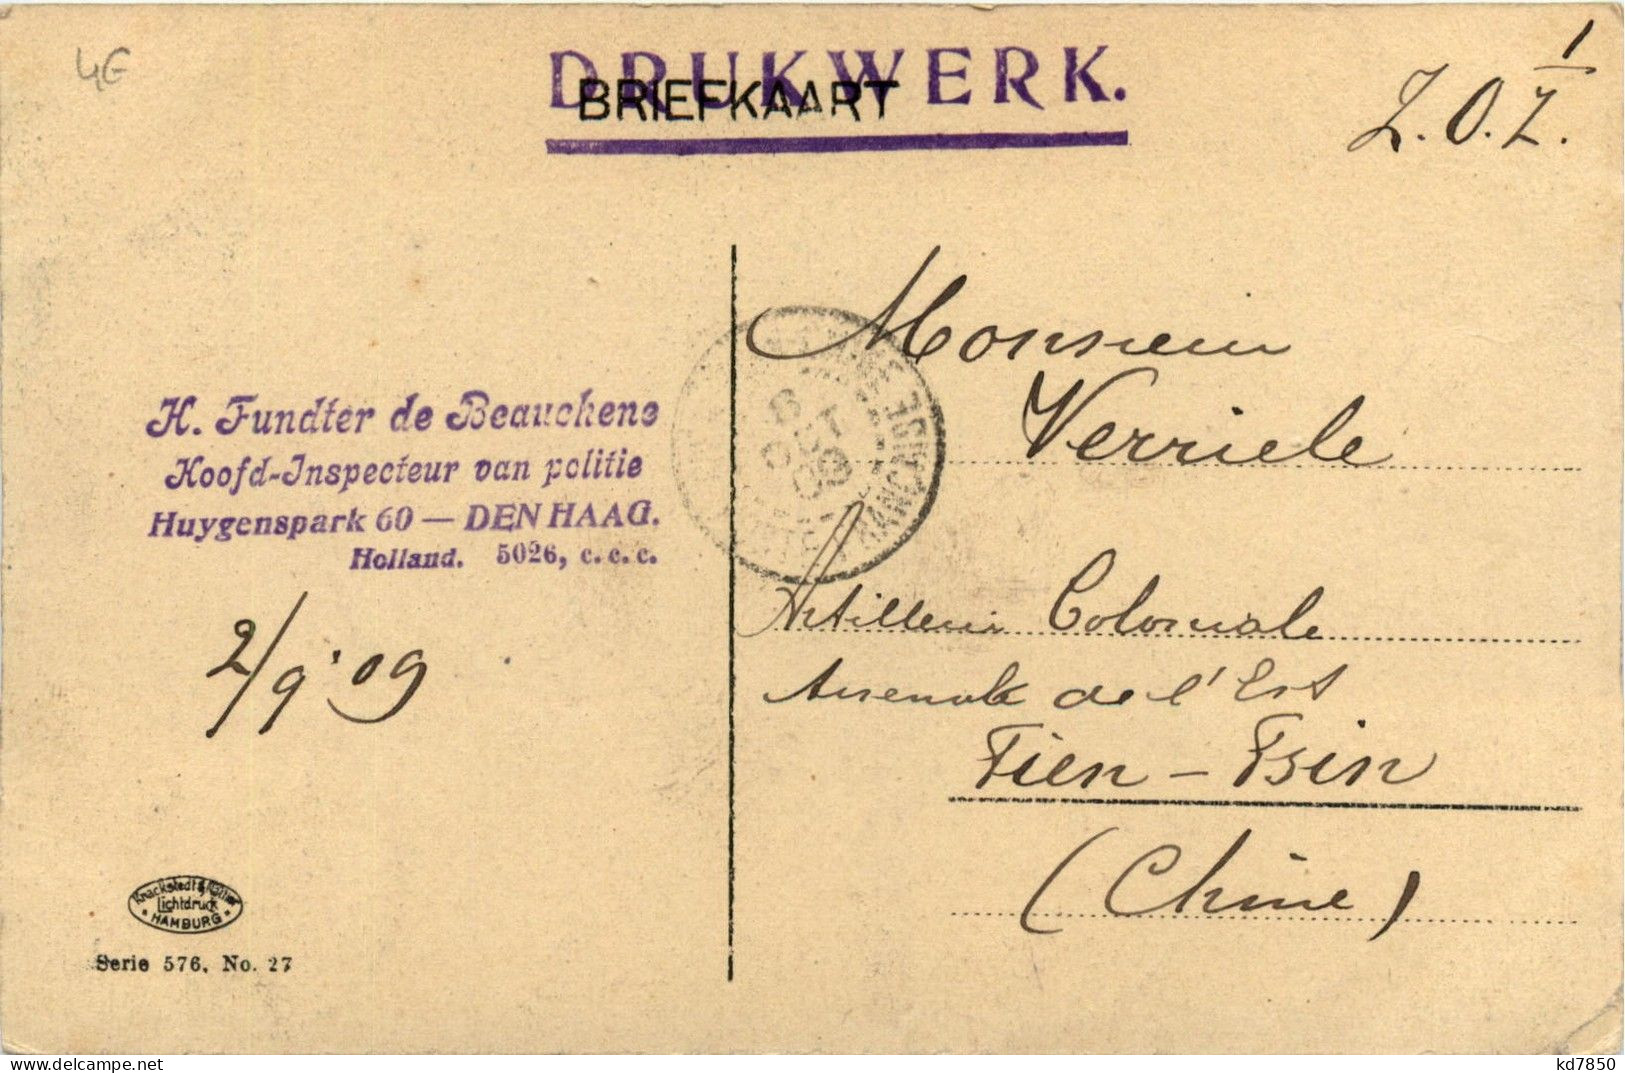 4€
DRUKWERK.
BRIEFKAART
1
Z.O.Z.
Monsieur
Verriele
H. Fundter de Beauchene
Hoofd-Inspecteur van politie
Huygenspark 60 — DEN HAAG.
Holland. 5026, c.c.c.
2/9'09
6
OCT
09
Artillerie Coloniale
Arsenale de l'Est
Tien-Tsin
(Chine)
Knackstedt &
Lichtdruck
HAMBURG
Serie 576, No. 27
www.delcampe.net
kd7850